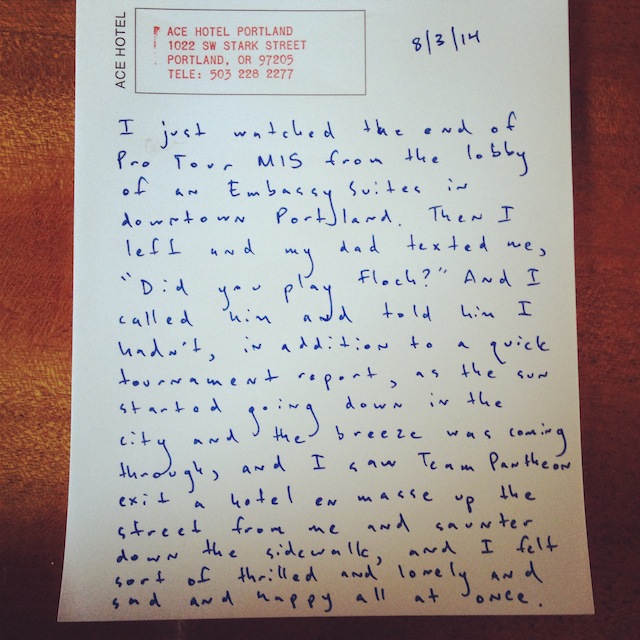 ACE HOTEL
ACE HOTEL PORTLAND
1022 SW STARK STREET
PORTLAND, OR 97205
TELE: 503 228 2277
8/3/14
I just watched the end of
Pro Tour M15 from the lobby
of an Embassy Suites in
downtown Portland. Then I
left and my dad texted me,
"Did you play Floch?" And I
called him and told him I
hadn't, in addition to a quick
tournament report, as the sun
started going down in the
city and the breeze was coming
through, and I saw Team Pantheon
exit a hotel en masse up the
street from me and saunter
down the sidewalk, and I felt
sort of thrilled and lonely and
sad and happy all at once.